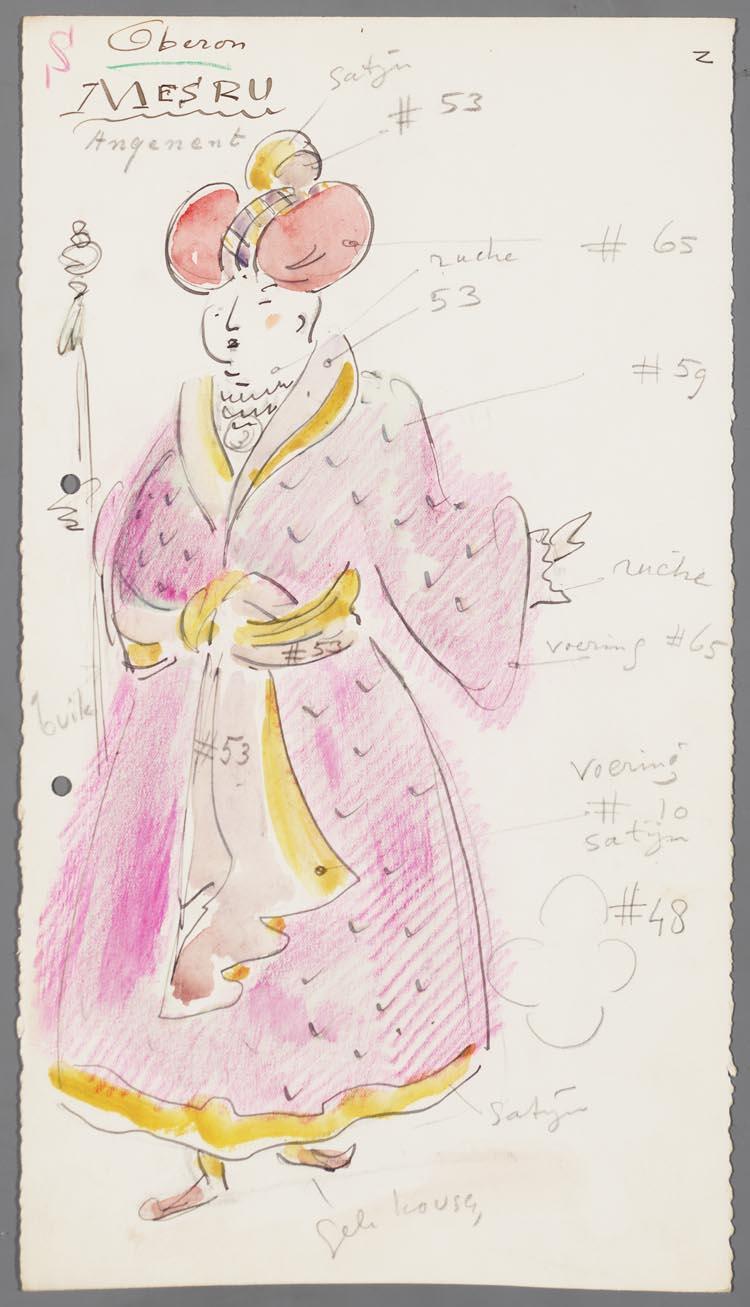 S
Oberon
MESRU
Angenent
N
satijn
# 53
# 65
ruche
53
# 59
ruche
voering #65
#53
buik
#53
voering
# 10
satijn
#48
satijn
gele kousen